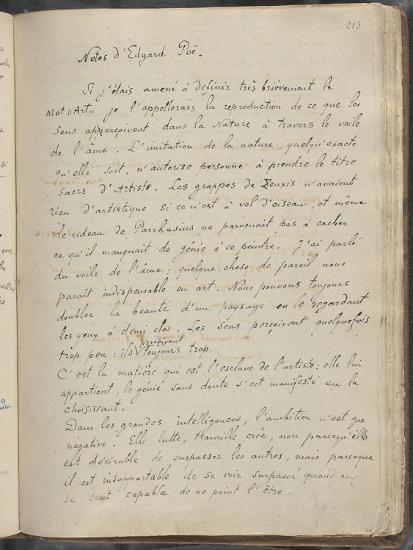 213
Notes d'Edgard Poë.
Si j'étais amené à définir très brièvement le
Mot "Art" je l'appellerais la reproduction de ce que les
Sens apperçoivent dans la Nature à travers le voile
de l'âme. L'imitation de la nature, quelqu'exacte
qu'elle soit, n'autorise personne à prendre le titre
Sacré d'Artiste. Les grappes de Zeuxis n'avaient
rien d'artistique si ce n'est à vol d'oiseau, et même
le rideau de Parrhasius ne parvenait pas à cacher
ce qu'il manquait de génie à ce peintre. J'ai parlé
du voile de l'âme; quelque chose de pareil nous
parait indispensable en art. Nous pouvons toujours
doubler la beauté d'un paysage en le regardant
les yeux à demi clos. Les Sens perçoivent quelquefois
trop peu; ils perçoivent toujours trop.
C'est la matière qui est l'esclave de l'artiste; elle lui
appartient, le génie sans doute s'est manifesté en la
choisissant.
Dans les grandes intelligences, l'ambition n'est que
négative. Elle lutte, travaille crée, non parcequ'elle
est désirable de surpasser les autres, mais parceque
il est insupportable de se voir surpassé quand on
se sent capable de ne point l'être.